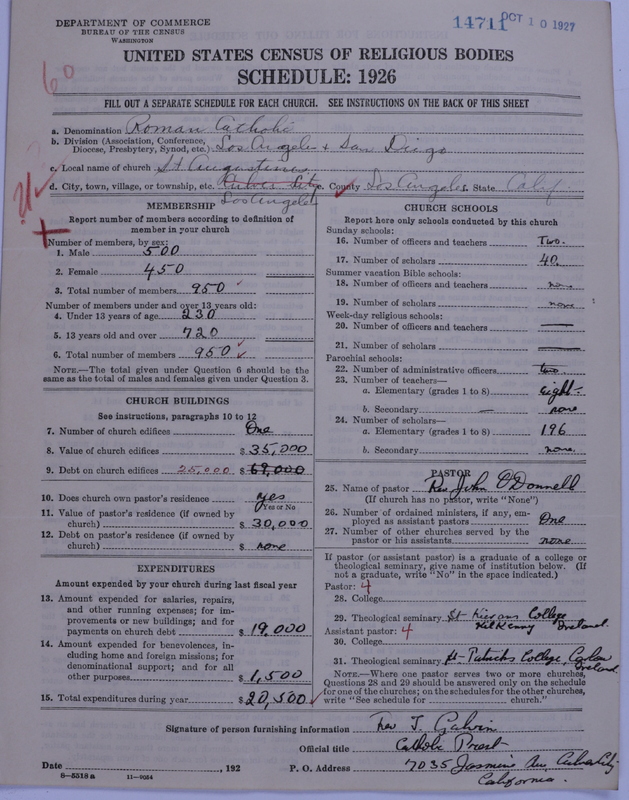 DEPARTMENT OF COMMERCE
BUREAU OF THE CENSUS
WASHINGTON
14711 OCT 10 1927
UNITED STATES CENSUS OF RELIGIOUS BODIES
SCHEDULE: 1926
60
FILL OUT A SEPARATE SCHEDULE FOR EACH CHURCH. SEE INSTRUCTIONS ON THE BACK OF THIS SHEET
a. Denomination Roman Catholic
b. Division (Association, Conference, Diocese, Presbytery, Synod, etc.) Los Angeles & San Diego
c. Local name of church St Augustines
d. City, town, village, or township, etc. Culver City e. County Los Angeles f. State Calif
Los Angeles
MEMBERSHIP
Report number of members according to definition of
member in your church
Number of members, by sex:
1. Male 500
2. Female 450
3. Total number of members 950
Number of members under and over 13 years old:
4. Under 13 years of age 230
5. 13 years old and over 720
6. Total number of members 950
NOTE.—The total given under Question 6 should be
the same as the total of males and females given under Question 3.
CHURCH BUILDINGS
See instructions, paragraphs 10 to 12
7. Number of church edifices One
8. Value of church edifices $ 35,000
9. Debt on church edifices 25,000 $ 69,000
10. Does church own pastor's residence yes
Yes or No
11. Value of pastor's residence (if owned by
church) $ 30,000
12. Debt on pastor's residence (if owned by
church) $ none
EXPENDITURES
Amount expended by your church during last fiscal year
13. Amount expended for salaries, repairs,
and other running expenses; for im-
provements or new buildings; and for
payments on church debt $ 19,000
14. Amount expended for benevolences, in-
cluding home and foreign missions; for
denominational support; and for all
other purposes $ 1,500
15. Total expenditures during year $ 20,500
CHURCH SCHOOLS
Report here only schools conducted by this church
Sunday schools:
16. Number of officers and teachers Two.
17. Number of scholars 40.
Summer vacation Bible schools:
18. Number of officers and teachers none
19. Number of scholars none
Week-day religious schools:
20. Number of officers and teachers
21. Number of scholars
Parochial schools:
22. Number of administrative officers two
23. Number of teachers—
a. Elementary (grades 1 to 8) eight
b. Secondary none
24. Number of scholars—
a. Elementary (grades 1 to 8) 196
b. Secondary none.
PASTOR
25. Name of pastor Rev John O'Donnell
(If church has no pastor, write "None")
26. Number of ordained ministers, if any, em-
ployed as assistant pastors One
27. Number of other churches served by the
pastor or his assistants none
If pastor (or assistant pastor) is a graduate of a college or
theological seminary, give name of institution below. (If
not a graduate, write "No" in the space indicated.)
Pastor: 4
28. College
29. Theological seminary St Kierans College
Kilkenny Ireland.
Assistant pastor: 4
30. College
31. Theological seminary St-Patricks College, Carlow
Ireland.
NOTE.—Where one pastor serves two or more churches,
Questions 28 and 29 should be answered only on the schedule
for one of the churches; on the schedules for the other churches,
write "See schedule for church."
Signature of person furnishing information Rev T. Galvin
Official title Catholic Priest
Date , 192 P. O. Address 7035 Jasmine Av Culver City
California.
8—5518 a 11—9084